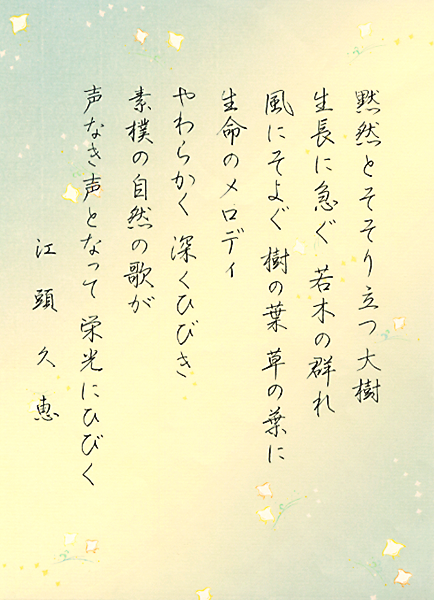 黙然とそそり立つ大樹
生長に急ぐ 若木の群れ
風にそよぐ 樹の葉 草の葉に
生命のメロディ
やわらかく 深くひびき
素樸の自然の歌が
声なき声となって 栄光にひびく
江頭久恵